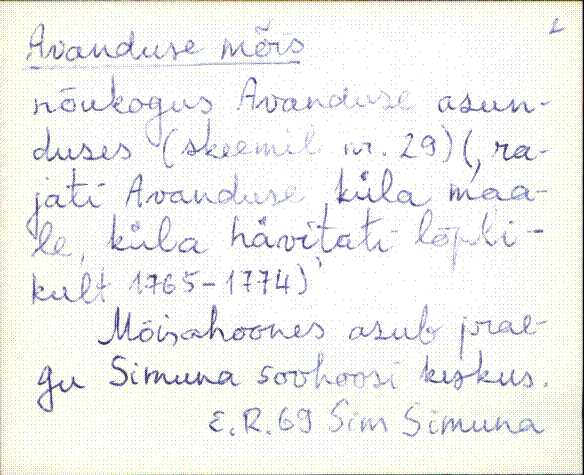 Avanduse mõis
nõukogus Avanduse asun-
duses (skeemil nr. 29) (, ra-
jati Avanduse küla maa-
le, küla hävitati lõpli-
kult 1765-1774)
Mõisahoones asub prae-
gu Simuna sovhoosi keskus.
E.R. 69 Sim Simuna